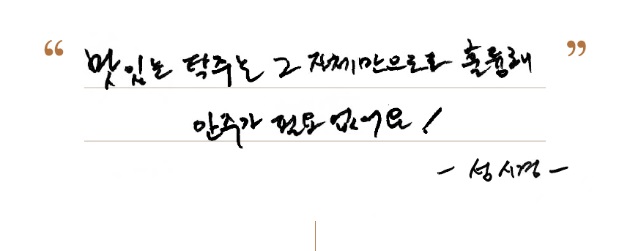 “ 맛있는 탁주는 그 자체만으로도 훌륭해 ”
안주가 필요 없어요!
- 성시경 -